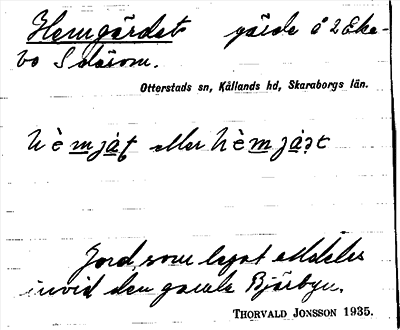 Hemgärdet gärde å 2 Eke-
bo Sdärom.
Otterstads sn, Kållands hd, Skaraborgs län.
hèmját eller hèmjáṭt
Jord, som legat alldeles
invid den gamla Bjärbyn.
THORVALD JONSSON 1935.